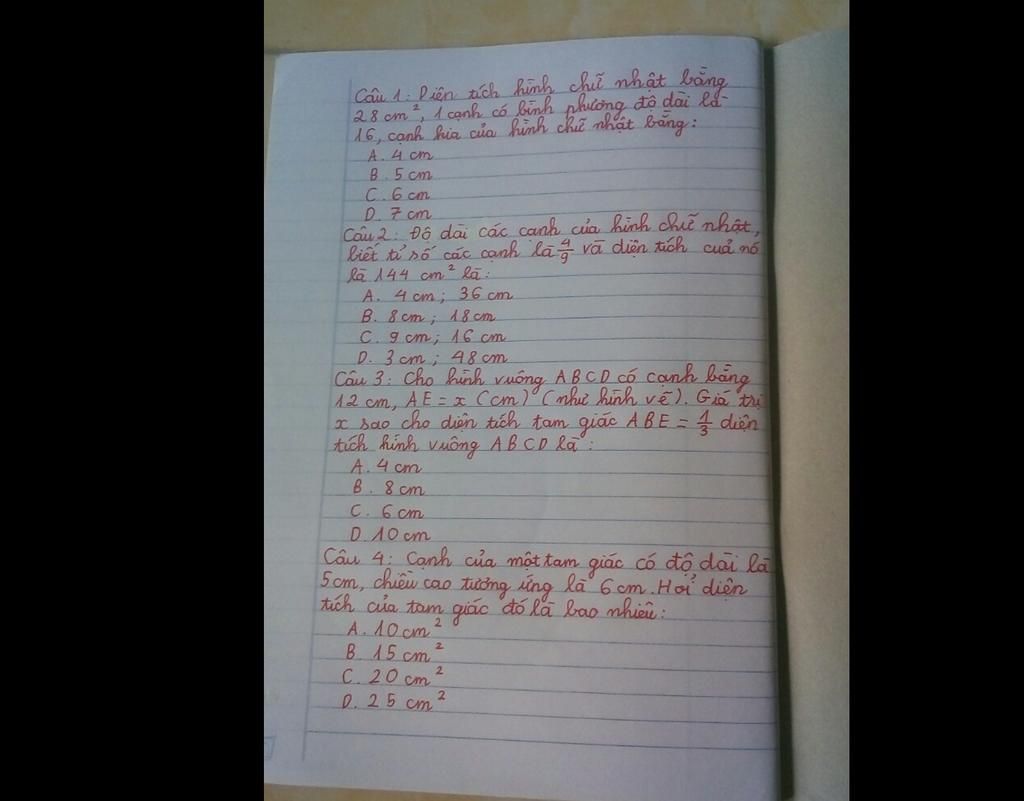 Câu 1: Diện tích hình chữ nhật bằng
28 cm², 1 cạnh có bình phương độ dài là
16, cạnh kia của hình chữ nhật bằng:
A. 4 cm
B. 5 cm
C. 6 cm
D. 7 cm
Câu 2: Độ dài các cạnh của hình chữ nhật,
biết tỉ số các cạnh là 4/9 và diện tích cuả nó
là 144 cm² là:
A. 4 cm; 36 cm
B. 8 cm; 18 cm
C. 9 cm; 16 cm
D. 3 cm; 48 cm
Câu 3: Cho hình vuông ABCD có cạnh bằng
12 cm, AE = x (cm) (như hình vẽ). Giá trị
x sao cho diện tích tam giác ABE = 1/3 diện
tích hình vuông ABCD là:
A. 4 cm
B. 8 cm
C. 6 cm
D. 10 cm
Câu 4: Cạnh của một tam giác có độ dài là
5cm, chiều cao tương ứng là 6 cm. Hỏi diện
tích của tam giác đó là bao nhiêu:
A. 10 cm²
B. 15 cm²
C. 20 cm²
D. 25 cm²